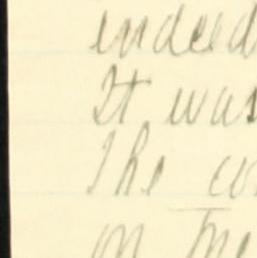 indeed
It was
The co
on the